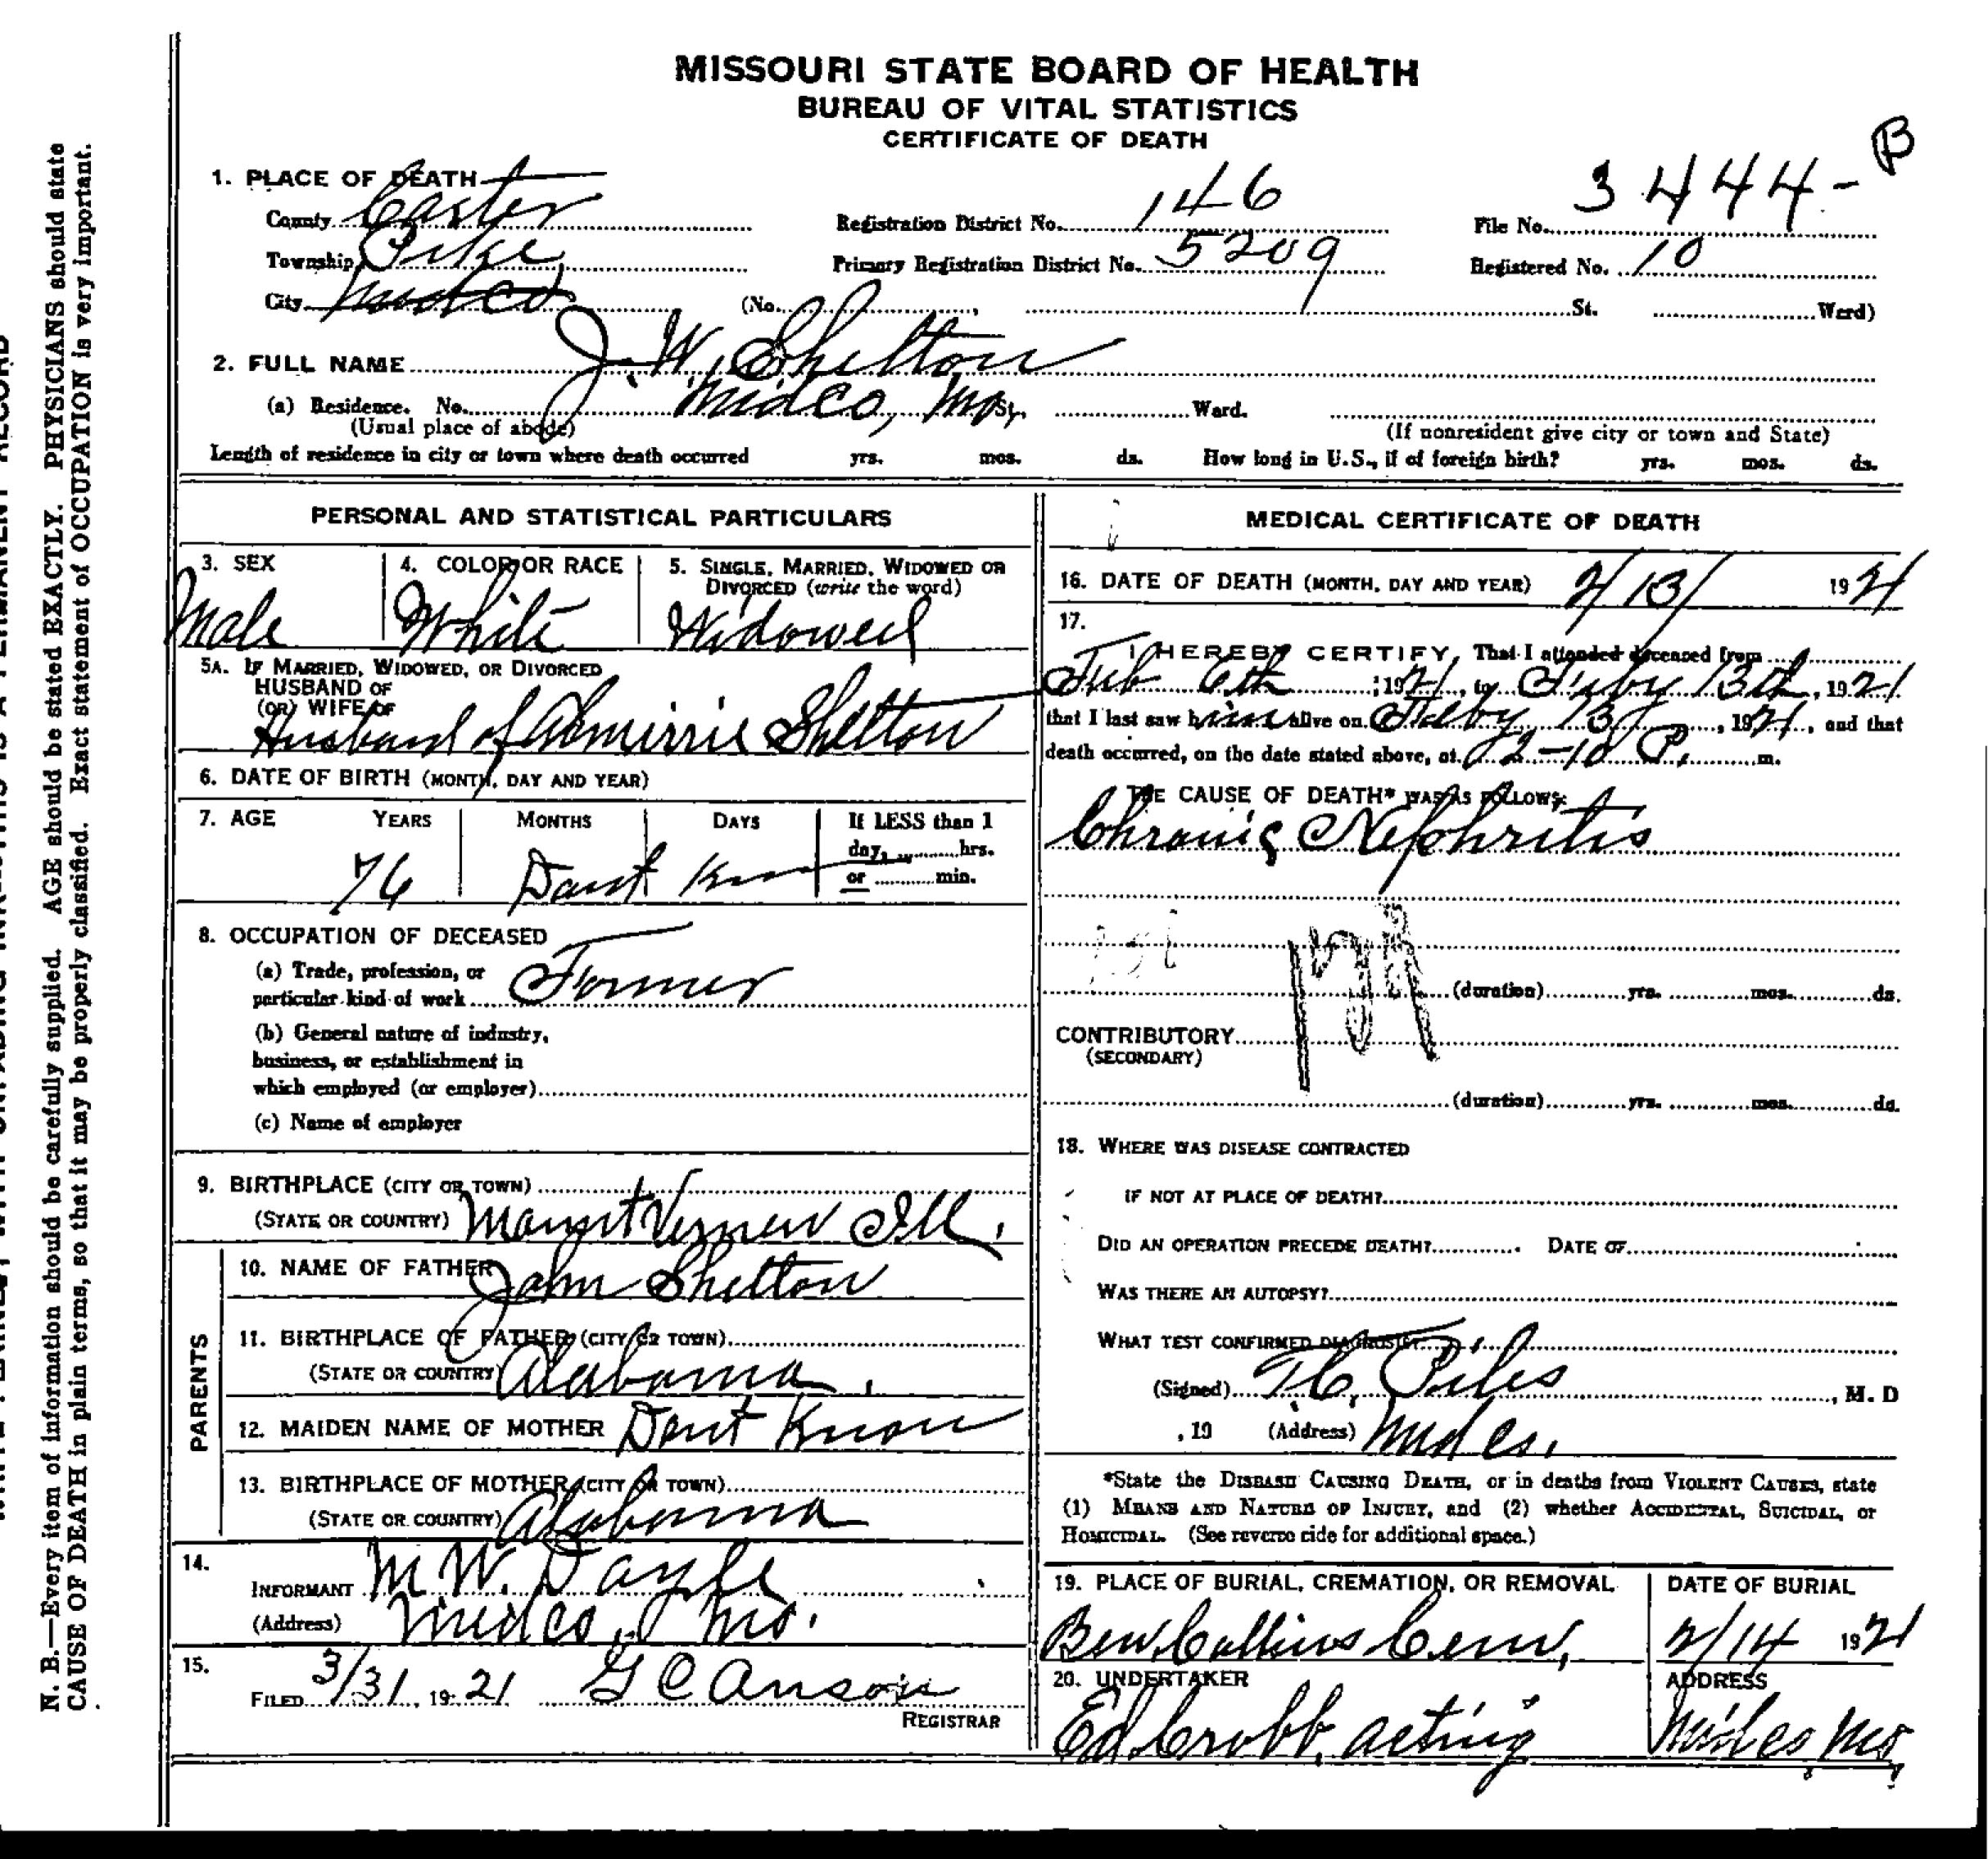 MISSOURI STATE BOARD OF HEALTH
BUREAU OF VITAL STATISTICS
CERTIFICATE OF DEATH
B
1. PLACE OF DEATH
County Carter Registration District No. 146 File No. 3444-
Township Pike Primary Registration District No. 5209 Registered No. 10
City Midco (No. , St. Ward)
2. FULL NAME J. W. Shelton
(a) Residence. No. Midco, Mo, St, Ward.
(Usual place of abode) (If nonresident give city or town and State)
Length of residence in city or town where death occurred yrs. mos. ds. How long in U.S., if of foreign birth? yrs. mos. ds.
PERSONAL AND STATISTICAL PARTICULARS
3. SEX 4. COLOR OR RACE 5. SINGLE, MARRIED, WIDOWED OR
DIVORCED (write the word)
Male White Widowed
5A. IF MARRIED, WIDOWED, OR DIVORCED
HUSBAND OF
(OR) WIFE OF
Husband of Shelton
6. DATE OF BIRTH (MONTH, DAY AND YEAR)
7. AGE YEARS MONTHS DAYS If LESS than 1
day, hrs.
or min.
76 Dont Know
8. OCCUPATION OF DECEASED
(a) Trade, profession, or
particular kind of work Farmer
(b) General nature of industry,
business, or establishment in
which employed (or employer)
(c) Name of employer
9. BIRTHPLACE (CITY OR TOWN)
(STATE OR COUNTRY) Mount Vernon Ill.
PARENTS
10. NAME OF FATHER John Shelton
11. BIRTHPLACE OF FATHER (CITY OR TOWN)
(STATE OR COUNTRY) Alabama.
12. MAIDEN NAME OF MOTHER Dont Know
13. BIRTHPLACE OF MOTHER (CITY OR TOWN)
(STATE OR COUNTRY) Alabama
14.
INFORMANT M. W.
(Address) Midco, Mo.
15.
FILED 3/31, 19 21 G C Anson
REGISTRAR
MEDICAL CERTIFICATE OF DEATH
16. DATE OF DEATH (MONTH, DAY AND YEAR) 2/13/ 1921
17.
I HEREBY CERTIFY, That I attended deceased from
Feb 6th, 1921, to Feby 13th, 1921
that I last saw him alive on Feby 13, 1921, and that
death occurred, on the date stated above, at 2-10 P. m.
THE CAUSE OF DEATH* WAS AS FOLLOWS:
Chronic Nephritis
(duration) yrs. mos. ds.
CONTRIBUTORY
(SECONDARY)
(duration) yrs. mos. ds.
18. WHERE WAS DISEASE CONTRACTED
IF NOT AT PLACE OF DEATH?
DID AN OPERATION PRECEDE DEATH? DATE OF
WAS THERE AN AUTOPSY?
WHAT TEST CONFIRMED DIAGNOSIS?
(Signed) Piles, M. D
, 19 (Address) Midco.
*State the DISEASE CAUSING DEATH, or in deaths from VIOLENT CAUSES, state
(1) MEANS AND NATURE OF INJURY, and (2) whether ACCIDENTAL, SUICIDAL, or
HOMICIDAL. (See reverse side for additional space.)
19. PLACE OF BURIAL, CREMATION, OR REMOVAL DATE OF BURIAL
Ben Collins Cem, 2/14 1921
20. UNDERTAKER ADDRESS
Ed Crobb, acting Midco Mo,
N. B.—Every item of information should be carefully supplied. AGE should be stated EXACTLY. PHYSICIANS should state
CAUSE OF DEATH in plain terms, so that it may be properly classified. Exact statement of OCCUPATION is very important.